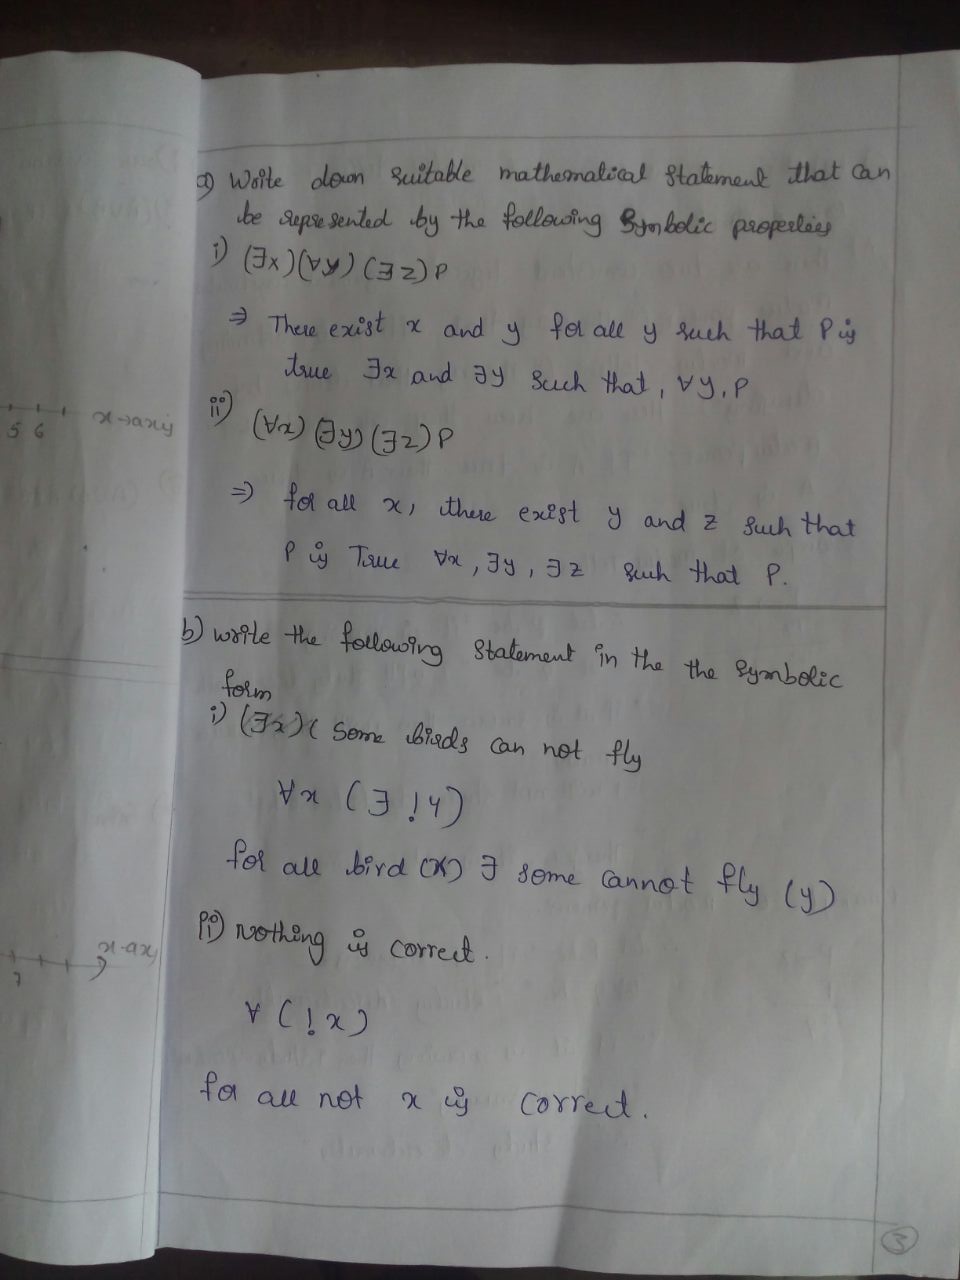 a) Write down suitable mathematical statement that can
be represented by the following Symbolic properties
i) (∃x)(∀y)(∃z)P
⇒ There exist x and y for all y such that P is
true ∃x and ∃y such that, ∀y, P
ii) (∀x)(∃y)(∃z)P
⇒ for all x, there exist y and z such that
P is True ∀x, ∃y, ∃z such that P.
b) write the following statement in the the symbolic
form
i) (∃x)( Some birds can not fly
∀x (∃ !y)
for all bird (x) ∃ some cannot fly (y)
ii) nothing is correct.
∀ (!x)
for all not x is correct.
5 6
x→axis
7
x-axis
3